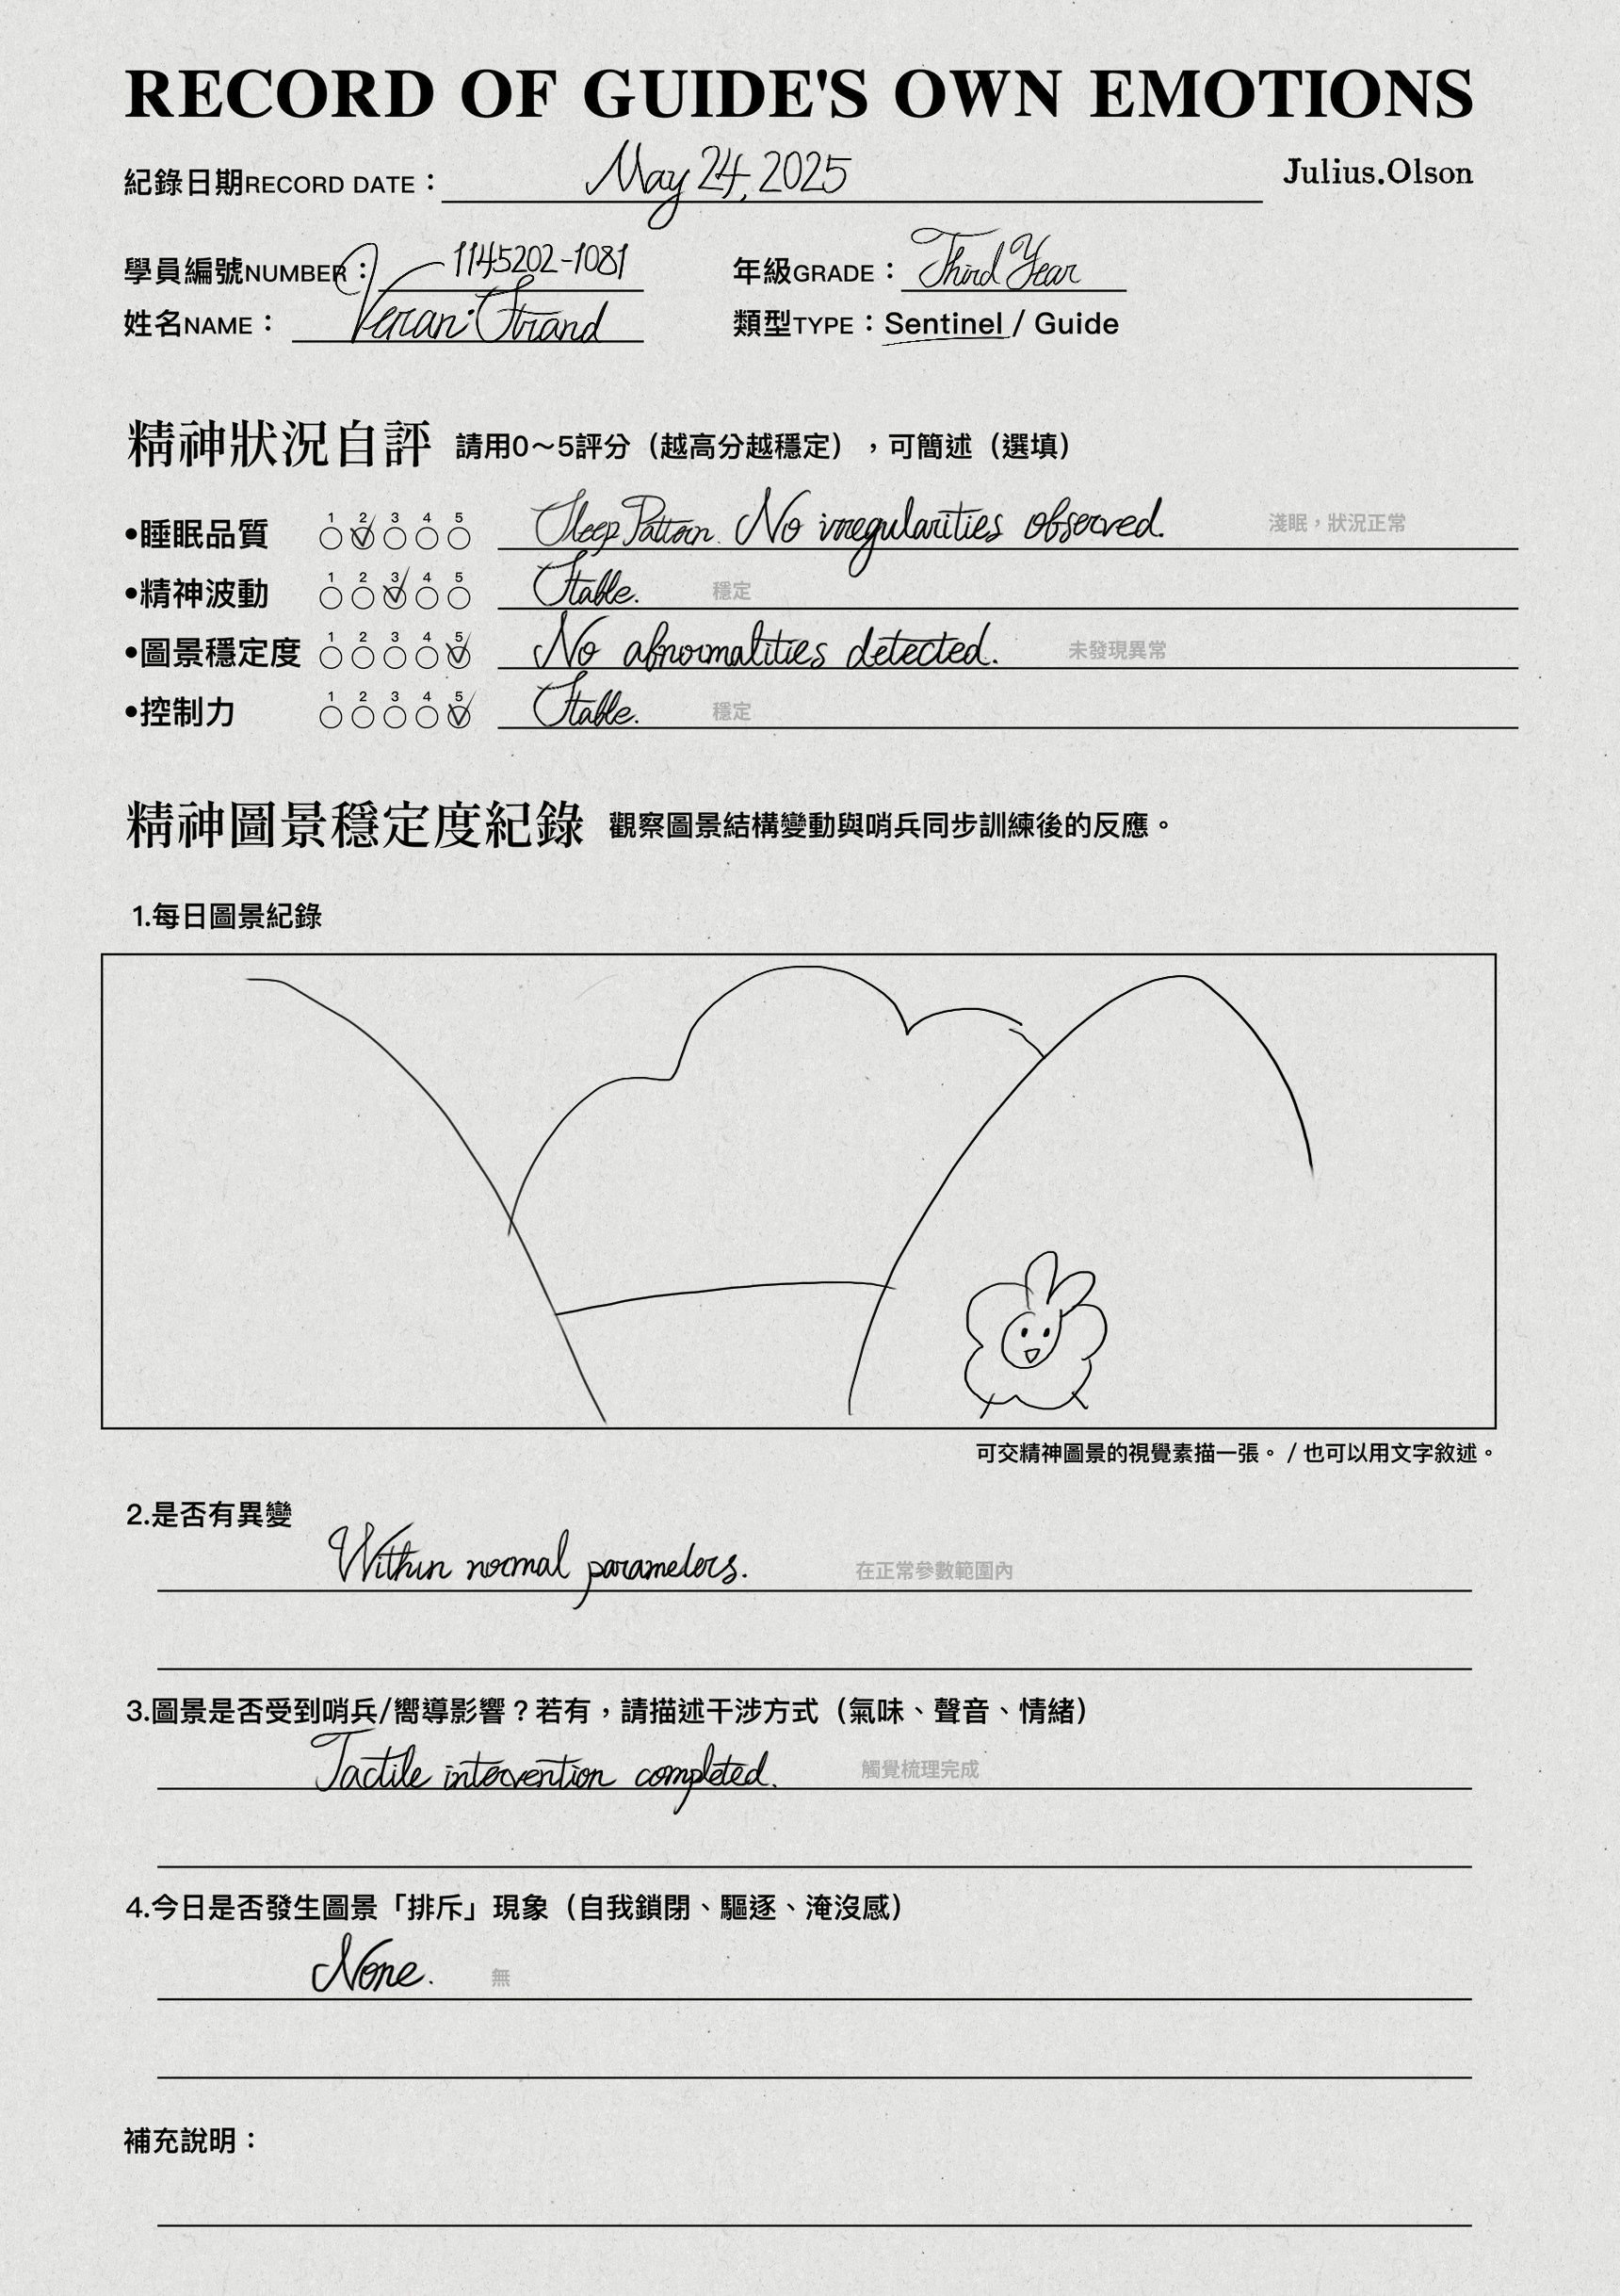 RECORD OF GUIDE'S OWN EMOTIONS
紀錄日期RECORD DATE： May 24, 2025 Julius.Olson
學員編號NUMBER： 1145202-1081 年級GRADE： Third Year
姓名NAME： Veran·Strand 類型TYPE：Sentinel / Guide
精神狀況自評 請用0～5評分（越高分越穩定），可簡述（選填）
•睡眠品質 1 2 3 4 5 Sleep Pattern. No irregularities observed. 淺眠，狀況正常
•精神波動 1 2 3 4 5 Stable. 穩定
•圖景穩定度 1 2 3 4 5 No abnormalities detected. 未發現異常
•控制力 1 2 3 4 5 Stable. 穩定
精神圖景穩定度紀錄 觀察圖景結構變動與哨兵同步訓練後的反應。
1.每日圖景紀錄
可交精神圖景的視覺素描一張。 / 也可以用文字敘述。
2.是否有異變
Within normal parameters. 在正常參數範圍內
3.圖景是否受到哨兵/嚮導影響？若有，請描述干涉方式（氣味、聲音、情緒）
Tactile intervention completed. 觸覺梳理完成
4.今日是否發生圖景「排斥」現象（自我鎖閉、驅逐、淹沒感）
None. 無
補充說明：